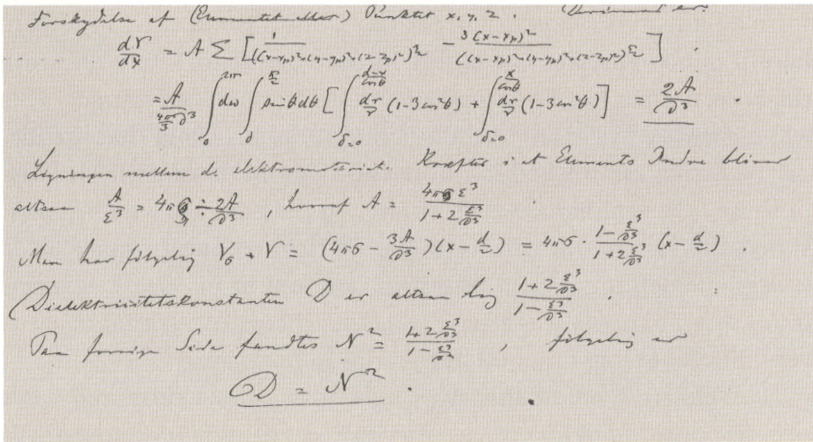 Forskydelse af (Elementet eller) Punktet x, y, z. Derimod er
dV/dx = A Σ [ 1/((x-xₚ)²+(y-yₚ)²+(z-zₚ)²)^(3/2) - 3(x-xₚ)²/((x-xₚ)²+(y-yₚ)²+(z-zₚ)²)^(5/2) ]
= A/(4π/3 δ³) ∫₀^2π dω ∫₀^(π/2) sinθ dθ [ ∫_(δ=0)^((d-x)/cosθ) dr/r (1-3cos²θ) + ∫_(δ=0)^(x/cosθ) dr/r (1-3cos²θ) ] = 2A/δ³ .
Ligningen mellem de elektromotoriske Kræfter i et Elements Indre bliver
altsaa A/ε³ = 4πσ ÷ 2A/δ³ , hvoraf A = 4πσε³/(1+2 ε³/δ³)
Man har følgelig V₆ + V = (4πσ - 3A/δ³)(x - d/2) = 4πσ · (1 - ε³/δ³)/(1+2 ε³/δ³) (x - d/2) .
(Dielektricitetskonstanten D er altsaa lig (1+2 ε³/δ³)/(1 - ε³/δ³) .
Paa forrige Side fandtes N² = (1+2 ε³/δ³)/(1 - ε³/δ³) , følgelig er
D = N² .